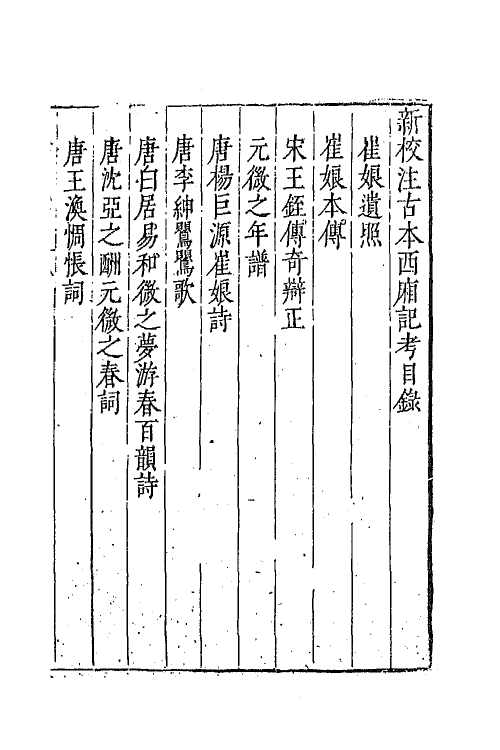 新校注古本西廂記考目錄
崔娘遺照
崔娘本傳
宋王銍傳奇辯正
元微之年譜
唐楊巨源崔娘詩
唐李紳鶯鶯歌
唐白居易和微之夢游春百韻詩
唐沈亞之酬元微之春詞
唐王渙惆悵詞